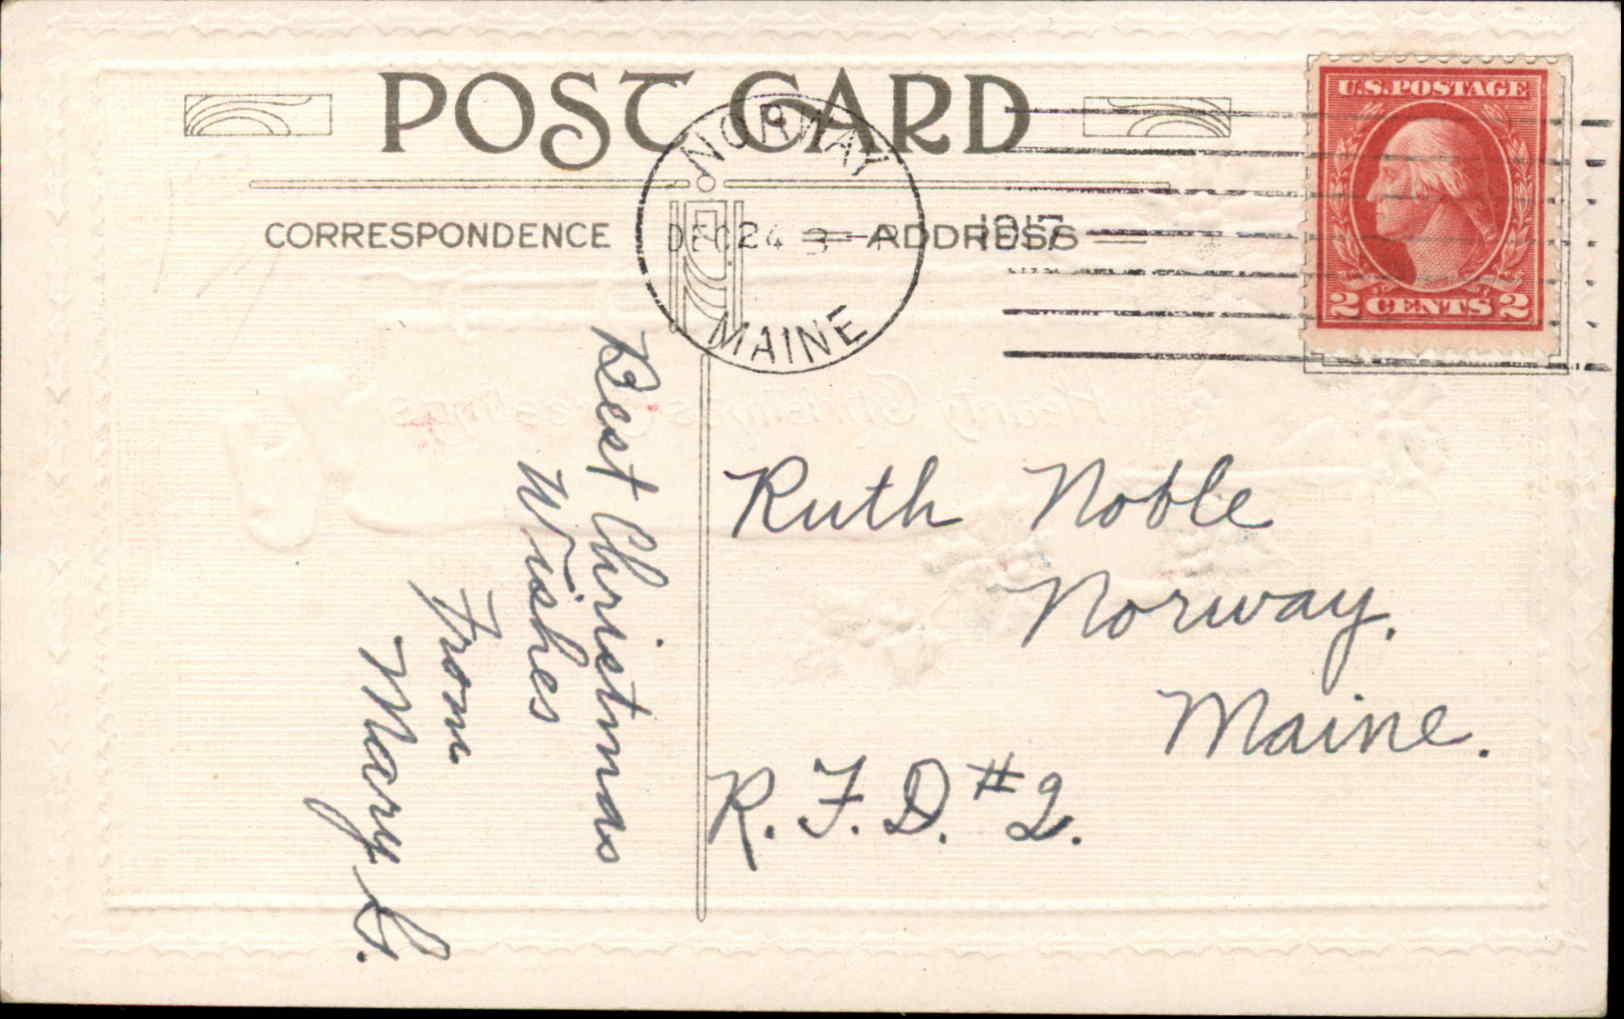 POST CARD
NORWAY
DEC 24 3-P
1917
MAINE
U.S. POSTAGE
2 CENTS 2
CORRESPONDENCE
ADDRESS
Best Christmas
Wishes
From
Mary
Ruth Noble
Norway.
Maine.
R. F. D. #2.